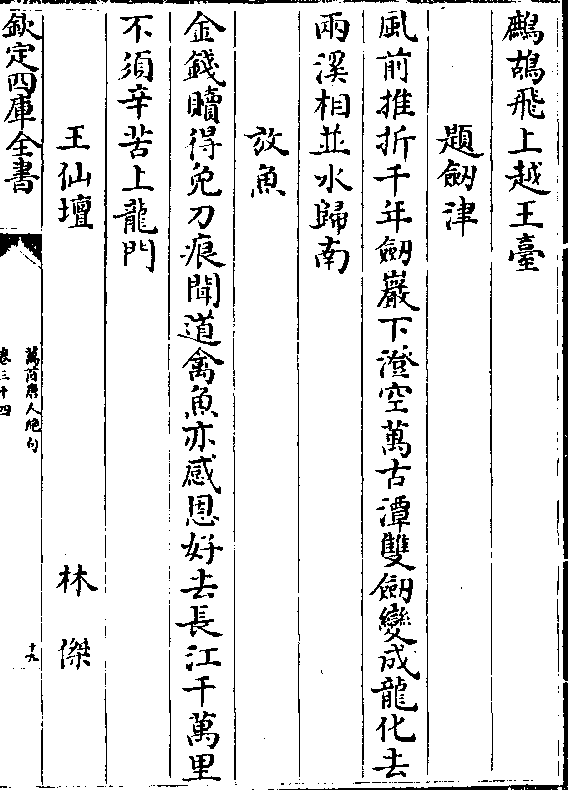 鷓鴣飛上越王臺
題劒津
風前推折千年劒巖下澄空萬古潭雙劒變成龍化去
兩溪相並水歸南
放魚
金錢贖得免刀痕聞道禽魚亦感恩好去長江千萬里
不須辛苦上龍門
王仙壇 林傑
欽定四庫全書
萬首唐人絶句
卷三十四
十九